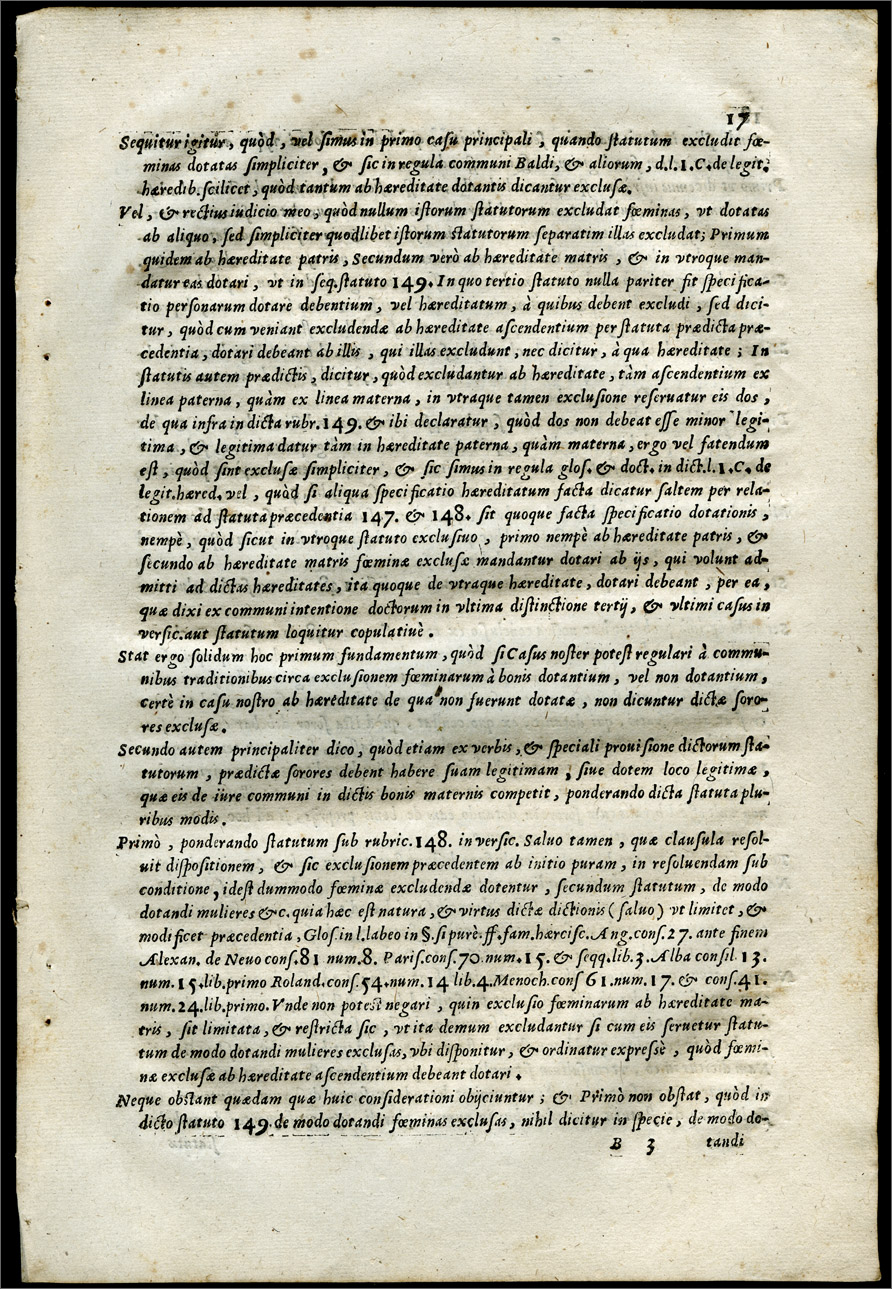 17
Sequitur igitur, quòd, vel simus in primo casu principali, quando statutum excludit fœ-
minas dotatas simpliciter, & sic in regula communi Baldi, & aliorum, d.l.1.C.de legit.
hæredib.scilicet, quòd tantum ab hæreditate dotantis dicantur exclusæ.
Vel, & rectius iudicio meo, quòd nullum istorum statutorum excludat fœminas, vt dotatas
ab aliquo, sed simpliciter quodlibet istorum statutorum separatim illas excludat; Primum
quidem ab hæreditate patris, Secundum verò ab hæreditate matris, & in vtroque man-
datur eas dotari, vt in seq.statuto 149. In quo tertio statuto nulla pariter fit specifica-
tio personarum dotare debentium, vel hæreditatum, à quibus debent excludi, sed dici-
tur, quòd cum veniant excludendæ ab hæreditate ascendentium per statuta prædicta præ-
cedentia, dotari debeant ab illis, qui illas excludunt, nec dicitur, à qua hæreditate; In
statutis autem prædictis, dicitur, quòd excludantur ab hæreditate, tàm ascendentium ex
linea paterna, quàm ex linea materna, in vtraque tamen exclusione reseruatur eis dos,
de qua infra in dicta rubr.149. & ibi declaratur, quòd dos non debeat esse minor legi-
tima, & legitima datur tàm in hæreditate paterna, quàm materna, ergo vel fatendum
est, quòd sint exclusæ simpliciter, & sic simus in regula glos. & doct. in dict.l.1.C. de
legit.hæred. vel, quòd si aliqua specificatio hæreditatum facta dicatur saltem per rela-
tionem ad statuta præcedentia 147. & 148. sit quoque facta specificatio dotationis,
nempè, quòd sicut in vtroque statuto exclusiuo, primo nempè ab hæreditate patris, &
secundo ab hæreditate matris fœminæ exclusæ mandantur dotari ab ijs, qui volunt ad-
mitti ad dictas hæreditates, ita quoque de vtraque hæreditate, dotari debeant, per ea,
quæ dixi ex communi intentione doctorum in vltima distinctione tertij, & vltimi casus in
versic.aut statutum loquitur copulatiuè.
Stat ergo solidum hoc primum fundamentum, quòd si Casus noster potest regulari à commu-
nibus traditionibus circa exclusionem fœminarum à bonis dotantium, vel non dotantium,
certè in casu nostro ab hæreditate de qua non fuerunt dotatæ, non dicuntur dictæ soro-
res exclusæ.
Secundo autem principaliter dico, quòd etiam ex verbis, & speciali prouisione dictorum sta-
tutorum, prædictæ sorores debent habere suam legitimam, siue dotem loco legitimæ,
quæ eis de iure communi in dictis bonis maternis competit, ponderando dicta statuta plu-
ribus modis.
Primò, ponderando statutum sub rubric.148. in versic. Saluo tamen, quæ clausula resol-
uit dispositionem, & sic exclusionem præcedentem ab initio puram, in resoluendam sub
conditione, idest dummodo fœminæ excludendæ dotentur, secundum statutum, de modo
dotandi mulieres &c. quia hæc est natura, & virtus dictæ dictionis (saluo) vt limitet, &
modificet præcedentia, Glos.in l.labeo in §.si purè.ff.fam.hærcisc.Ang.cons.27. ante finem
Alexan. de Neuo cons.81 num.8. Paris.cons.70 num.15. & seqq.lib.3. Alba consil 13.
num.15.lib.primo Roland.cons.54.num.14 lib.4.Menoch.cons 61.num.17. & cons.41.
num.24.lib.primo. Vnde non potest negari, quin exclusio fœminarum ab hæreditate ma-
tris, sit limitata, & restricta sic, vt ita demum excludantur si cum eis seruetur statu-
tum de modo dotandi mulieres exclusas, vbi disponitur, & ordinatur expressè, quòd fœmi-
næ exclusæ ab hæreditate ascendentium debeant dotari.
Neque obstant quædam quæ huic considerationi obijciuntur; & Primò non obstat, quòd in
dicto statuto 149. de modo dotandi fœminas exclusas, nihil dicitur in specie, de modo do-
B 3 tandi